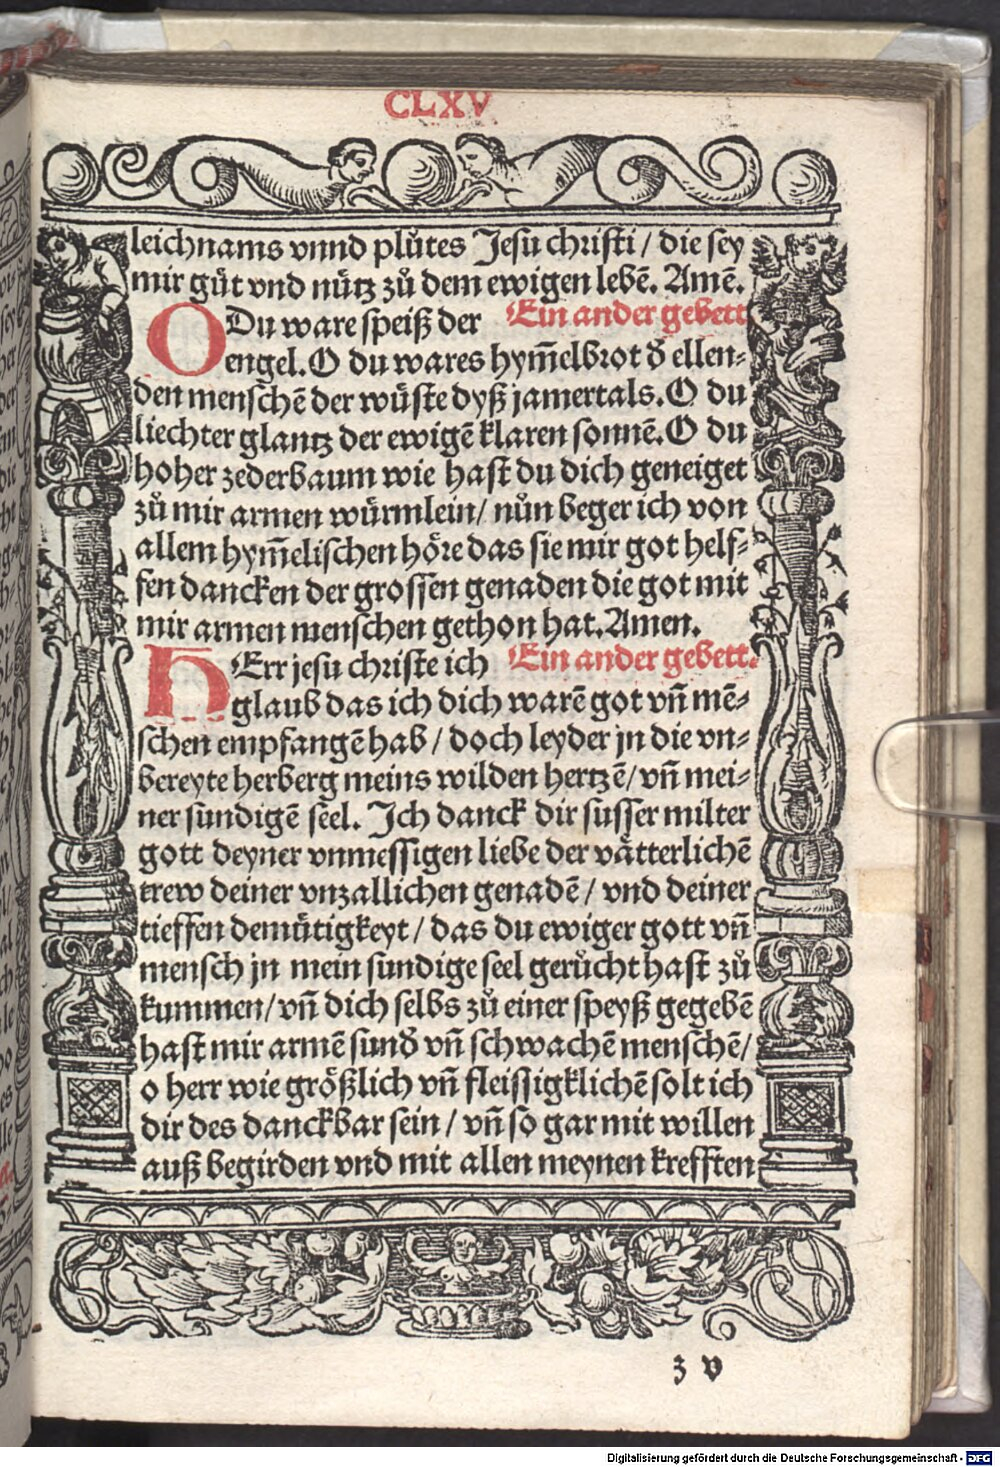 CLXV
leichnams vnnd plůtes Jesu christi / die sey
mir gůt vnd nütz zů dem ewigen lebẽ. Amẽ.
O Du ware speiß der Ein ander gebett
engel. O du wares hym̃elbrot d̕ ellen⸗
den menschẽ der wüste dyß jamertals. O du
liechter glantz der ewigẽ klaren sonnẽ. O du
hoher zederbaum wie hast du dich geneiget
zů mir armen würmlein / nůn beger ich von
allem hym̃elischen höre das sie mir got helf⸗
fen dancken der grossen genaden die got mit
mir armen menschen gethon hat. Amen.
HErr jesu christe ich Ein ander gebett.
glaub das ich dich warẽ got vñ mẽ⸗
schen empfangẽ hab / doch leyder jn die vn⸗
bereyte herberg meins wilden hertzẽ / vñ mei⸗
ner sundigẽ seel. Ich danck dir susser milter
gott deyner vnmessigen liebe der vätterlichẽ
trew deiner vnzallichen genadẽ / vnd deiner
tieffen demütigkeyt / das du ewiger gott vñ
mensch jn mein sundige seel gerůcht hast zů
kummen / vñ dich selbs zů einer speyß gegebẽ
hast mir armẽ sund̕ vñ schwachẽ menschẽ /
o herr wie größlich vñ fleissigklichẽ solt ich
dir des danckbar sein / vñ so gar mit willen
auß begirden vnd mit allen meynen krefften
z v
Digitalisierung gefördert durch die Deutsche Forschungsgemeinschaft - DFG